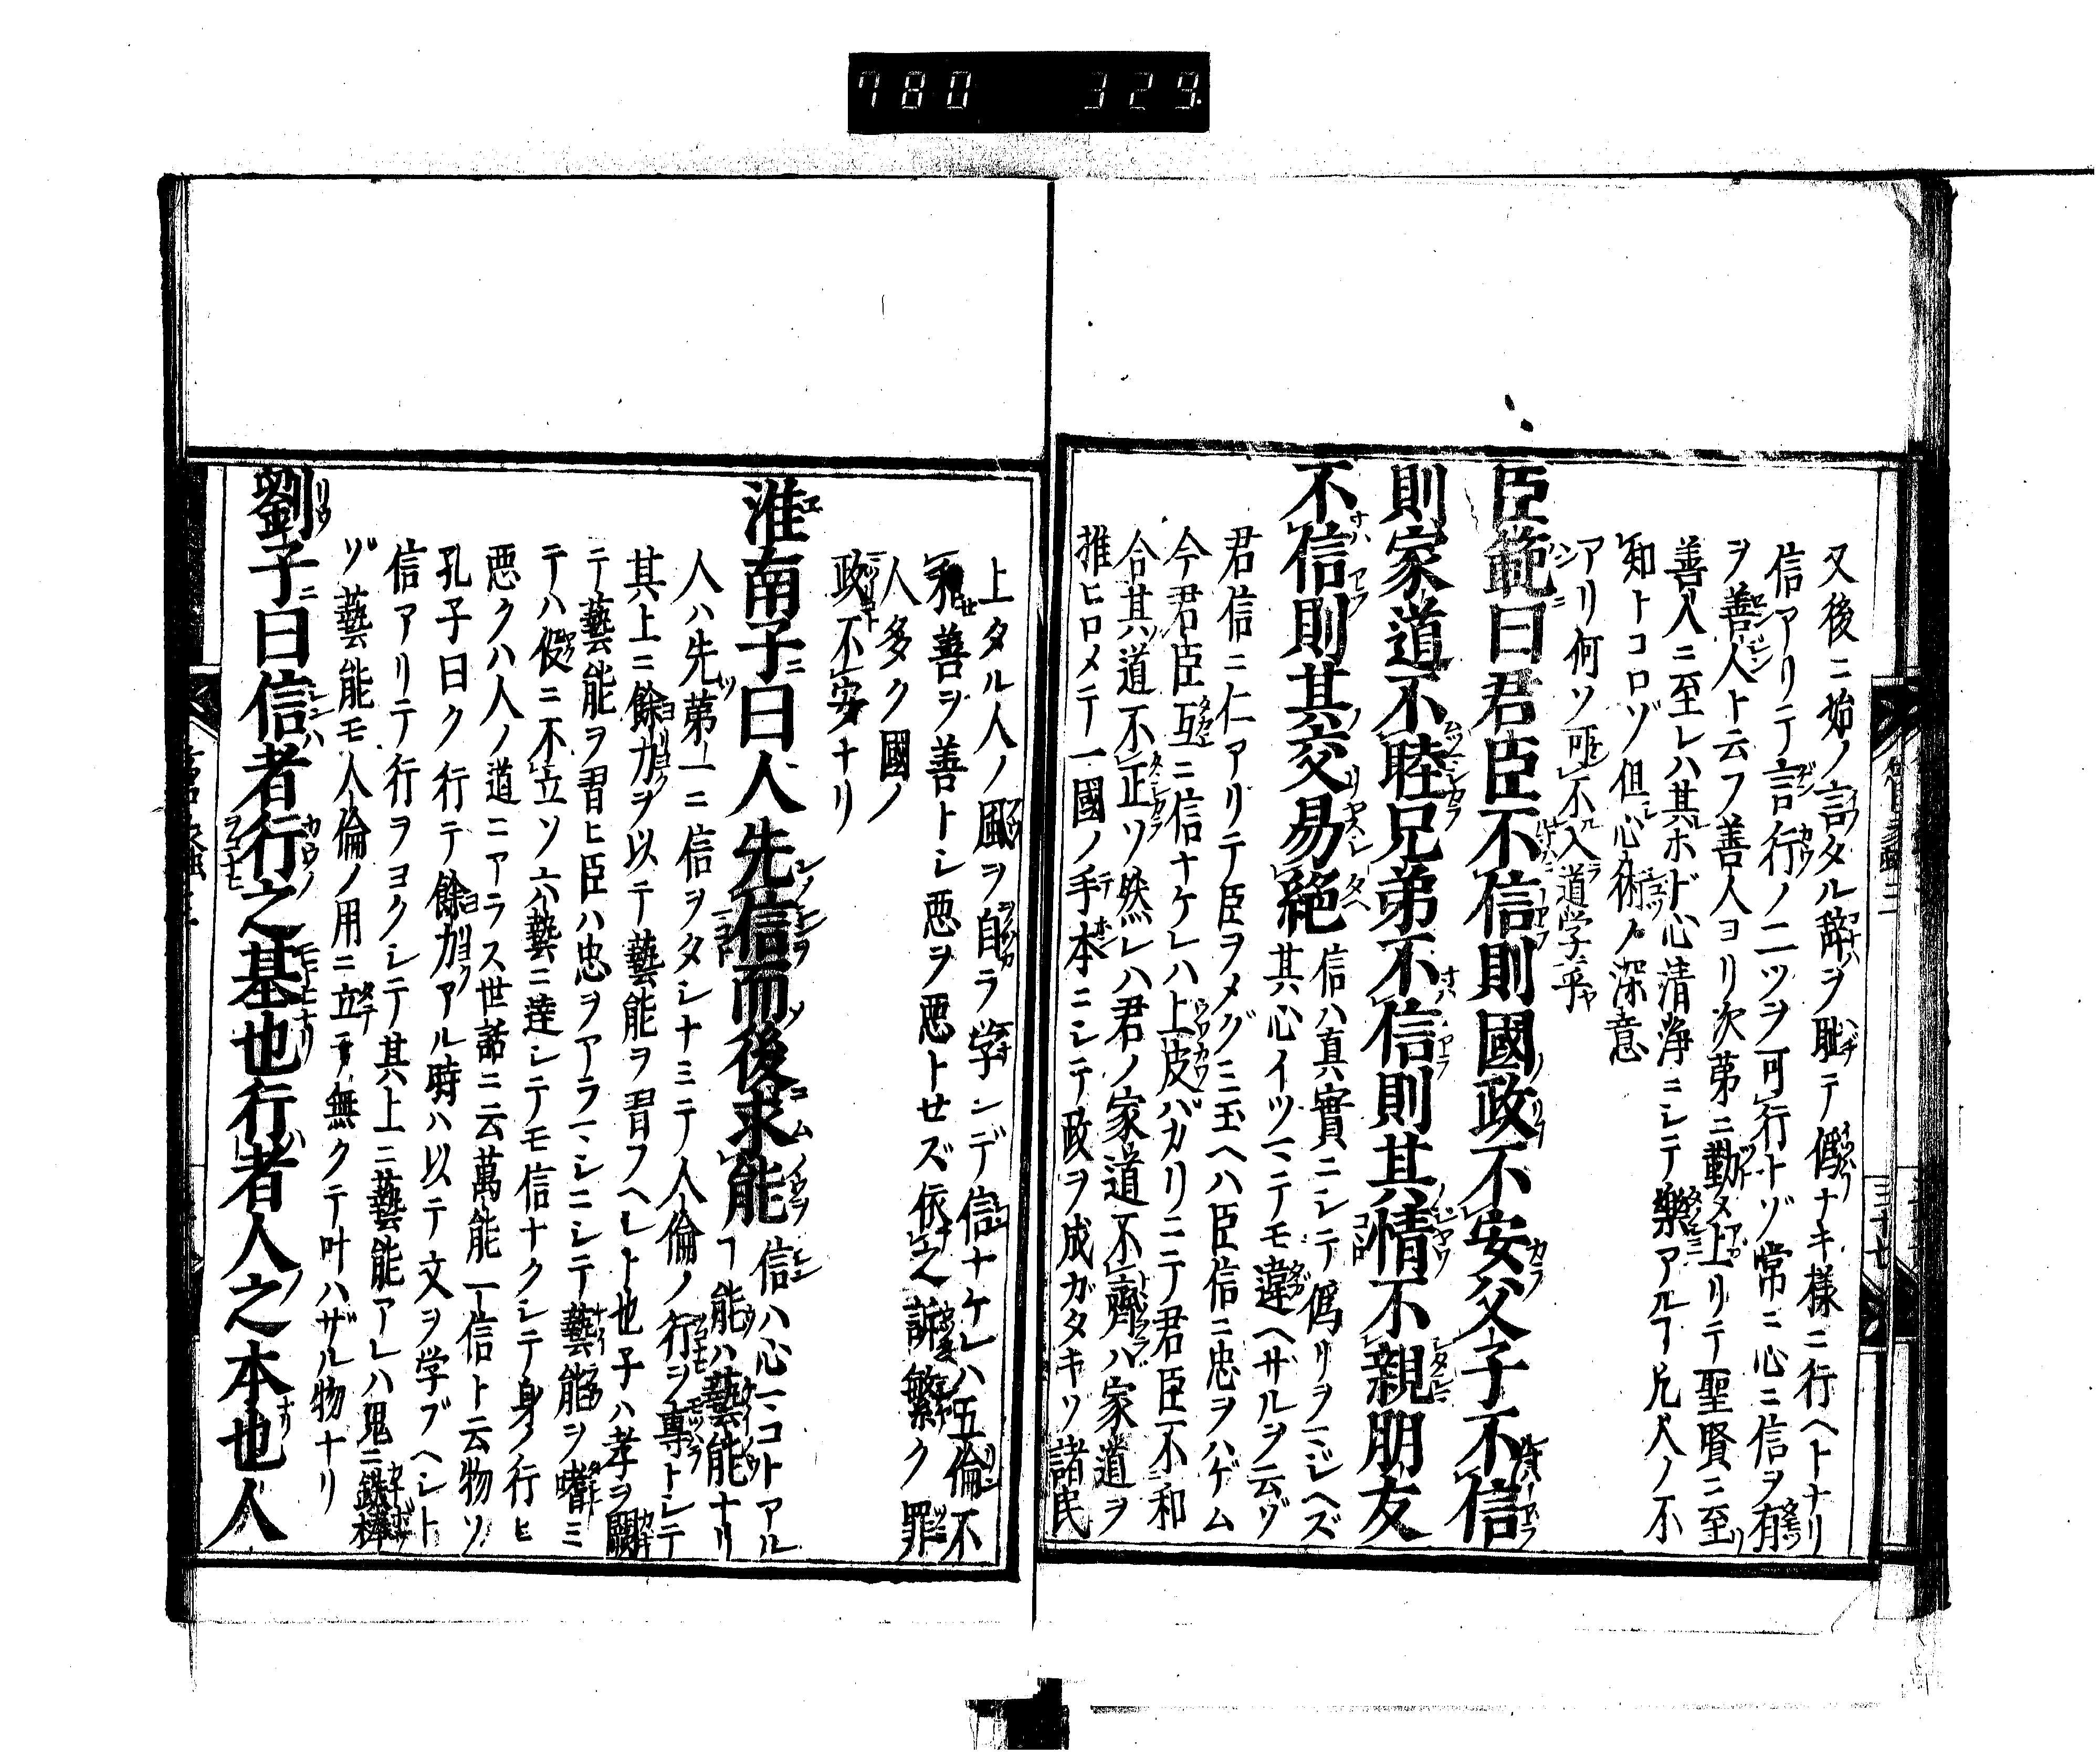 780 329
又後ニ始ノ言タル辞ヲ耻テ僞ナキ様ニ行ヘトナリ
信アリテ言行ノ二ツヲ可行トゾ常ニ心ニ信ヲ有
ヲ善人ト云フ善人ヨリ次第ニ勤メ上リテ聖賢ニ至
善人ニ至レハ其ホド心清浄ニシテ樂アルヿ凡人ノ不
知トコロゾ但心術ノ深意
アリ何ソ可不入道学乎
臣範曰君臣不信則國政不安父子不信
則家道不睦兄弟不信則其情不親朋友
不信則其交易絶
信ハ真實ニシテ僞リヲマジレヘズ
其心イツマテモ違ヘザルヲ云ゾ
君信ニ仁アリテ臣ヲメグミ玉ヘハ臣信ニ忠ヲハゲム
今君臣互ニ信ナケレハ上皮バカリニテ君臣不和
合其道不正ソ然レハ君ノ家道不齊ハ家道ヲ
推ヒロメテ一國ノ手本ニシテ政ヲ成ガタキソ諸民
上タル人ノ風ヲ自ラ学ンデ信ナケレハ五倫不
和善ヲ善トシ悪ヲ悪トせズ依之訴繁ク罪
人多ク國ノ
政不安ナリ
淮南子曰人先信而後求能
信ハ心マコトアル
ヿ能ハ藝能ナリ
人ハ先第一ニ信ヲタシナミテ人倫ノ行ヲ專トシテ
其上ニ餘力ヲ以テ藝能ヲ習フヘシト也子ハ孝ヲ
テ藝能ヲ習ヒ臣ハ忠ヲアラマシニシテ藝能ヲ嗜ミ
テハ役ニ不立ソ六藝ニ達シテモ信ナクシテ身ノ行ヒ
悪クハ人ノ道ニアラス世話ニ云萬能一信ト云物ソ
孔子曰ク行テ餘力アル時ハ以テ文ヲ学ブヘシト
信アリテ行ヲヨクシテ其上ニ藝能アレハ鬼ニ鉄棒
ゾ藝能モ人倫ノ用ニ立テ無クテ叶ハザル物ナリ
劉子曰信者行之基也行者人之本也人